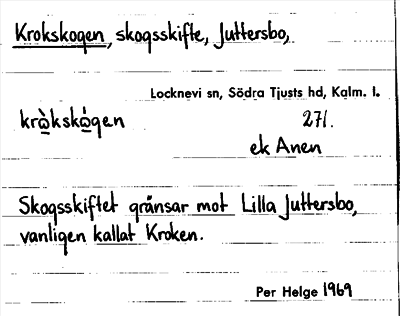 Krokskogen, skogsskifte, Juttersbo,
Locknevi sn, Södra Tjusts hd, Kalm. l.
krò̲kskò̲gen 271.
ek Anen
Skogsskiftet gränsar mot Lilla Juttersbo,
vanligen kallat Kroken.
Per Helge 1969